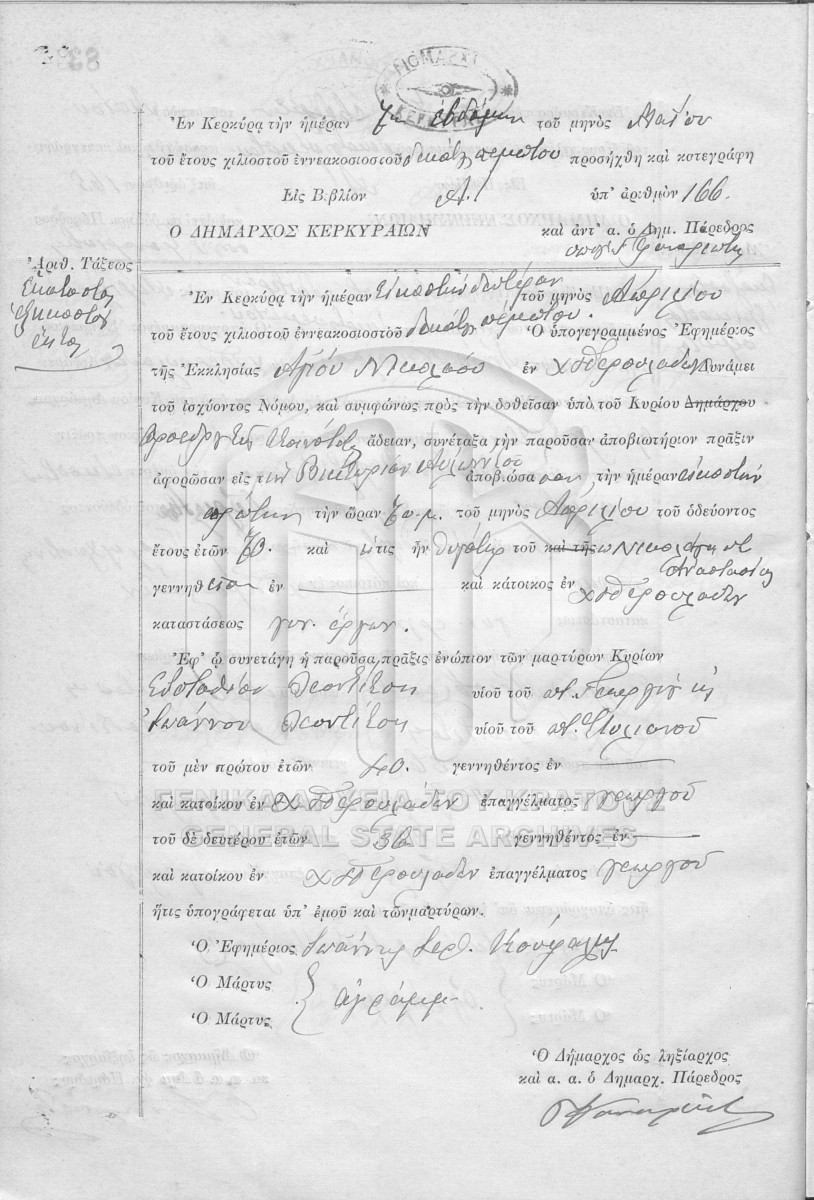 ΔΗΜΑΡΧΙ
ΚΕΡΚΥΡ
Ἐν Κερκύρᾳ τὴν ἡμέραν 7ην ἑβδόμην τοῦ μηνὸς Μαΐου
τοῦ ἔτους χιλιοστοῦ ἐννεακοσιοστοῦ δεκάτου πέμπτου προσήχθη καὶ κατεγράφη
Εἰς Βιβλίον Α. ὑπ' ἀριθμὸν 166.
Ο ΔΗΜΑΡΧΟΣ ΚΕΡΚΥΡΑΙΩΝ καὶ ἀντ' α. ὁ Δημ. Πάρεδρος
Ἀριθ. Τάξεως
Ἑκατοστὸν
ἑξηκοστὸν
ἕκτον
Ἐν Κερκύρᾳ τὴν ἡμέραν εἰκοστὴν δευτέραν τοῦ μηνὸς Ἀπριλίου
τοῦ ἔτους χιλιοστοῦ ἐννεακοσιοστοῦ δεκάτου πέμπτου. Ὁ ὑπογεγραμμένος Ἐφημέριος
τῆς Ἐκκλησίας Ἁγίου Νικολάου ἐν χ Περουλάδων Δυνάμει
τοῦ ἰσχύοντος Νόμου, καὶ συμφώνως πρὸς τὴν δοθεῖσαν ὑπὸ τοῦ Κυρίου Δημάρχου
Προέδρου τῆς Κοινότητος ἄδειαν, συνέταξα τὴν παροῦσαν ἀποβιωτήριον πρᾶξιν
ἀφορῶσαν εἰς τὴν ἀποβιώσασαν, τὴν ἡμέραν εἰκοστὴν
πρώτην τὴν ὥραν 7 π.μ. τοῦ μηνὸς Ἀπριλίου τοῦ ὁδεύοντος
ἔτους ἐτῶν καὶ ἥτις ἦν θυγάτηρ τοῦ καὶ τῆς Νικολάου καὶ
Ἀναστασίας
γεννηθεῖσαν ἐν καὶ κάτοικος ἐν χ Περουλάδων
καταστάσεως γυν. ἔργων.
Ἐφ' ᾧ συνετάγη ἡ παροῦσα πρᾶξις ἐνώπιον τῶν μαρτύρων Κυρίων
Εὐσταθίου Λεοντίτση υἱοῦ τοῦ ποτ. Γεωργίου κ
Ἰωάννου Λεοντίτση υἱοῦ τοῦ ποτ. Στυλιανοῦ
τοῦ μὲν πρώτου ἐτῶν 40. γεννηθέντος ἐν
καὶ κατοίκου ἐν χ Περουλάδων ἐπαγγέλματος γεωργοῦ
ΓΕΝΙΚΑ ΑΡΧΕΙΑ ΤΟΥ ΚΡΑΤΟΥΣ
GENERAL STATE ARCHIVES
τοῦ δὲ δευτέρου ἐτῶν 36 γεννηθέντος ἐν
καὶ κατοίκου ἐν χ Περουλάδων ἐπαγγέλματος γεωργοῦ
ἥτις ὑπογράφεται ὑπ' ἐμοῦ καὶ τῶν μαρτύρων.
Ὁ Ἐφημέριος Ἰωάννης
Ὁ Μάρτυς
ἀγράμμ.
Ὁ Μάρτυς
Ὁ Δήμαρχος ὡς ληξίαρχος
καὶ α. α. ὁ Δημαρχ. Πάρεδρος